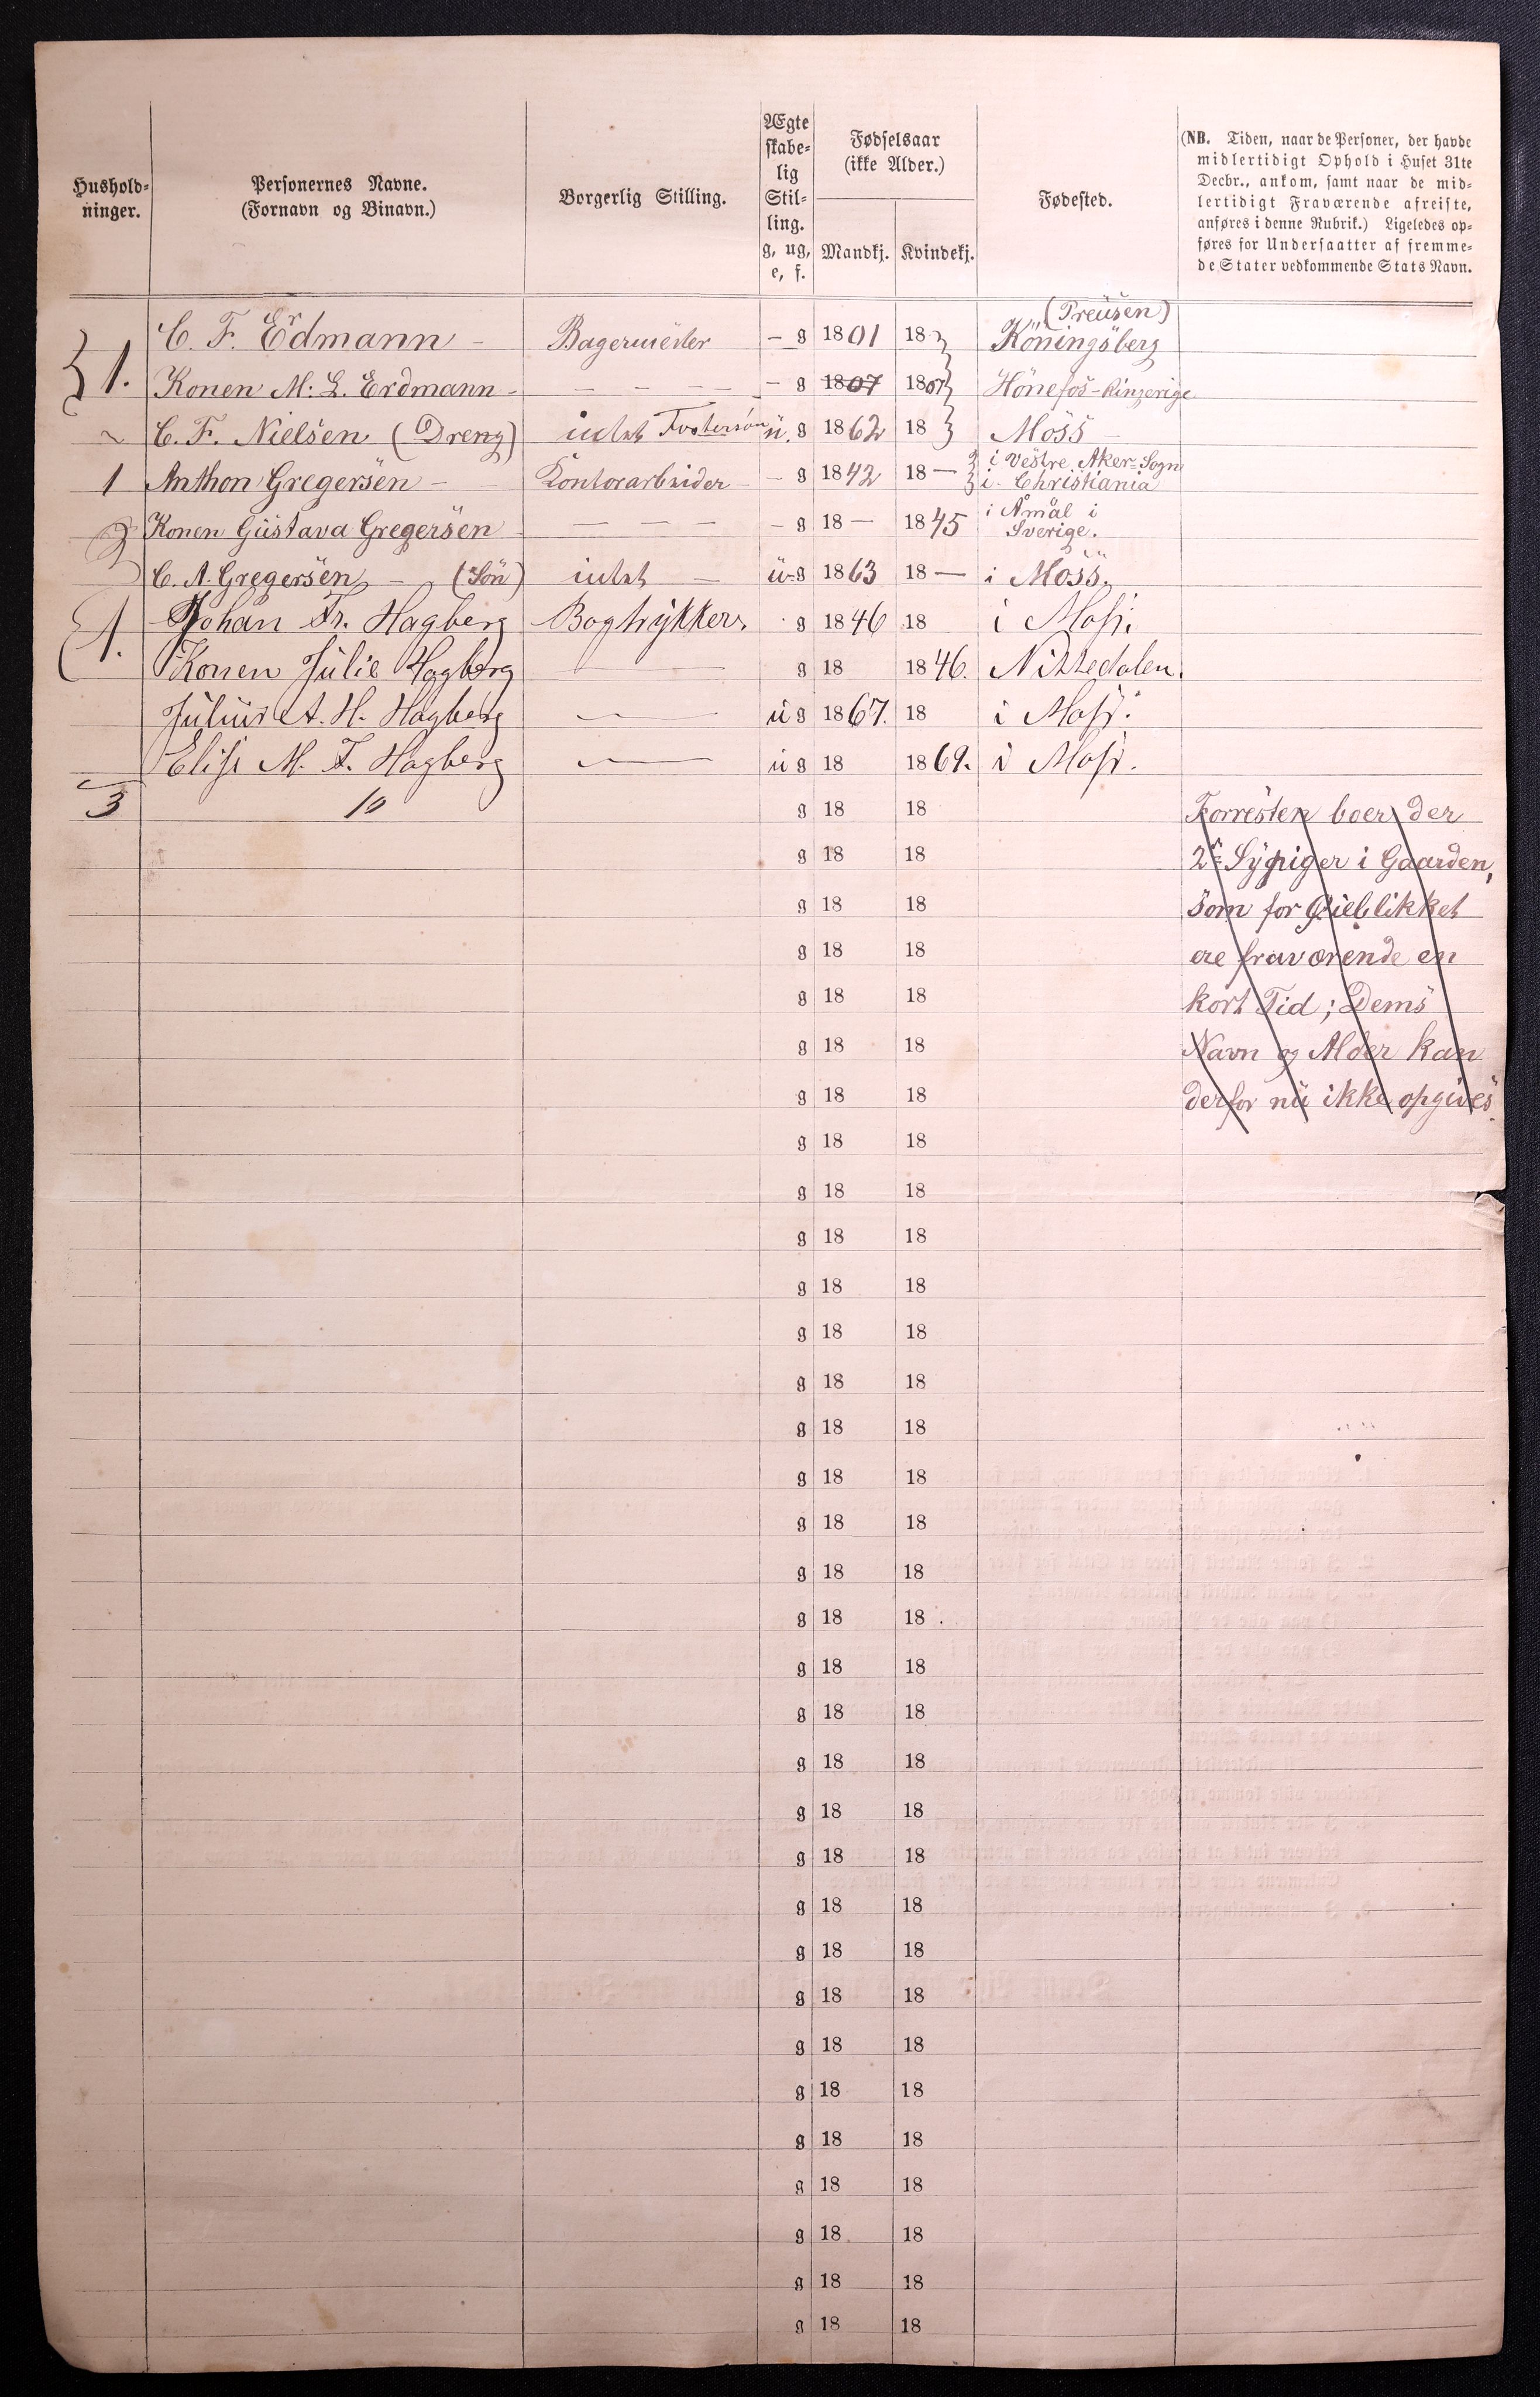 Hushold-
ninger.
Personernes Navne.
(Fornavn og Binavn.)
Borgerlig Stilling.
Ægte
skabe-
lig
Stil-
ling.
g, ug,
e, f.
Fødselsaar
(ikke Alder.)
Mandkj. Kvindekj.
Fødested.
(NB. Tiden, naar de Personer, der havde
midlertidigt Ophold i Huset 31te
Decbr., ankom, samt naar de mid-
lertidigt Fraværende afreiste,
anføres i denne Rubrik.) Ligeledes op-
føres for Undersaatter af fremme-
de Stater vedkommende Stats Navn.
(Preusen)
1. C. F. Erdmann - Bagermester - g 1801 18 Köningsberg
Konen M. L. Erdmann - - - - - - g 1807 1807 Hönefos - Ringerige
C. F. Nielsen (Dreng) intet Fostersøn u. g 1862 18 Moss -
1 Anthon Gregersen - Kontorarbeider - g 1842 18 - i Vestre Aker Sogn
i Christiania
Konen Gustava Gregersen - - - - g 18 - 1845 i Åmål i
Sverige.
C. A. Gregersen - (Søn) intet - u-g 1863 18 - i Moss.
1. Johan Fr. Hagberg Bogtrykker g 1846 18 i Moss.
Konen Julie Hagberg — g 18 1846. Nittedalen.
Julius A. H. Hagberg — u g 1867. 18 i Moss.
Elise M. F. Hagberg — u g 18 1869. i Moss.
3 10 g 18 18 Forresten boer der
g 18 18 2de Sypiger i Gaarden,
g 18 18 som for Øieblikket
g 18 18 ere fraværende en
g 18 18 kort Tid; Dems
g 18 18 Navn og Alder kan
g 18 18 derfor nu ikke opgives.
g 18 18
g 18 18
g 18 18
g 18 18
g 18 18
g 18 18
g 18 18
g 18 18
g 18 18
g 18 18
g 18 18
g 18 18
g 18 18
g 18 18
g 18 18
g 18 18
g 18 18
g 18 18
g 18 18
g 18 18
g 18 18
g 18 18
g 18 18
g 18 18
g 18 18
g 18 18